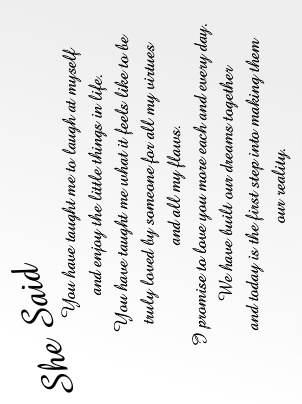 She Said
You have taught me to laugh at myself
and enjoy the little things in life.
You have taught me what it feels like to be
truly loved by someone for all my virtues
and all my flaws.
I promise to love you more each and every day.
We have built our dreams together
and today is the first step into making them
our reality.